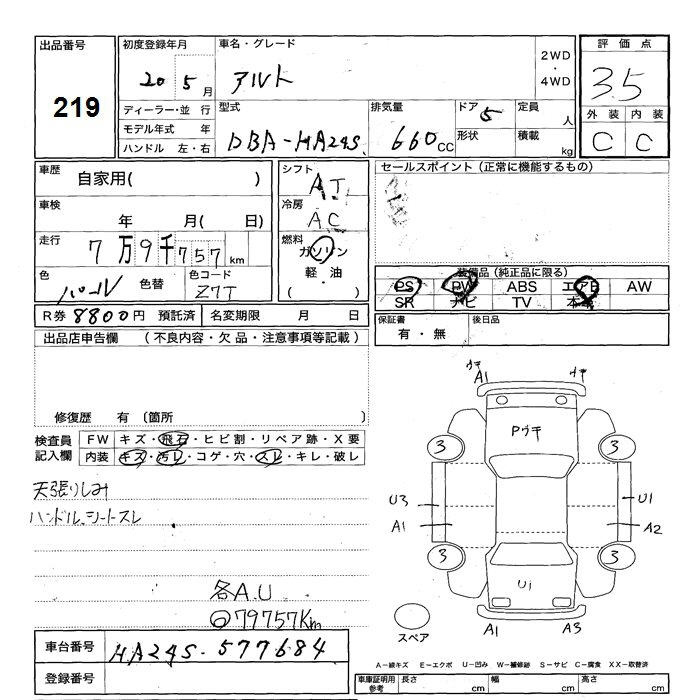 出品番号 初度登録年月 車名・グレード 2WD・4WD 評価点
219 20 5月 アルト 3.5
ディーラー・並行 型式 排気量 ドア 5 定員 人 外装 内装
モデル年式 年 DBA-HA24S 660CC 形状 積載 kg C C
ハンドル 左・右
車歴 自家用( ) シフト AT セールスポイント(正常に機能するもの)
車検 年 月( 日) 冷房 AC
走行 7万9千757km 燃料 ガソリン
軽・油
( ・ )
色 パール 色替 色コード Z7T
装備品(純品に限る)
PS PW ABS エアB AW
SR ナビ TV 本革
R券 8800円 預託済 名変期限 月 日
保証書 有・無 後日品
出品店申告欄 (不良内容・欠品・注意事項等記載)
修復歴 有 〔箇所 〕
検査員 FW キズ・飛石・ヒビ割・リペア跡・X要
記入欄 内装 キズ・汚レ・コゲ・穴・スレ・キレ・破レ
天張りしみ
ハンドル、シートスレ
各A.U
79757Km
車台番号 HA24S-577684
登録番号
ウキ A1 ウキ
Pウキ
3 3
U3 U1
A1 A2
3 3
U1
スペア A1 A3
A-線キズ E-エクボ U-凹み W-補修跡 S-サビ C-腐食 XX-取替済
車庫証明用参考 長さ cm 幅 cm 高さ cm